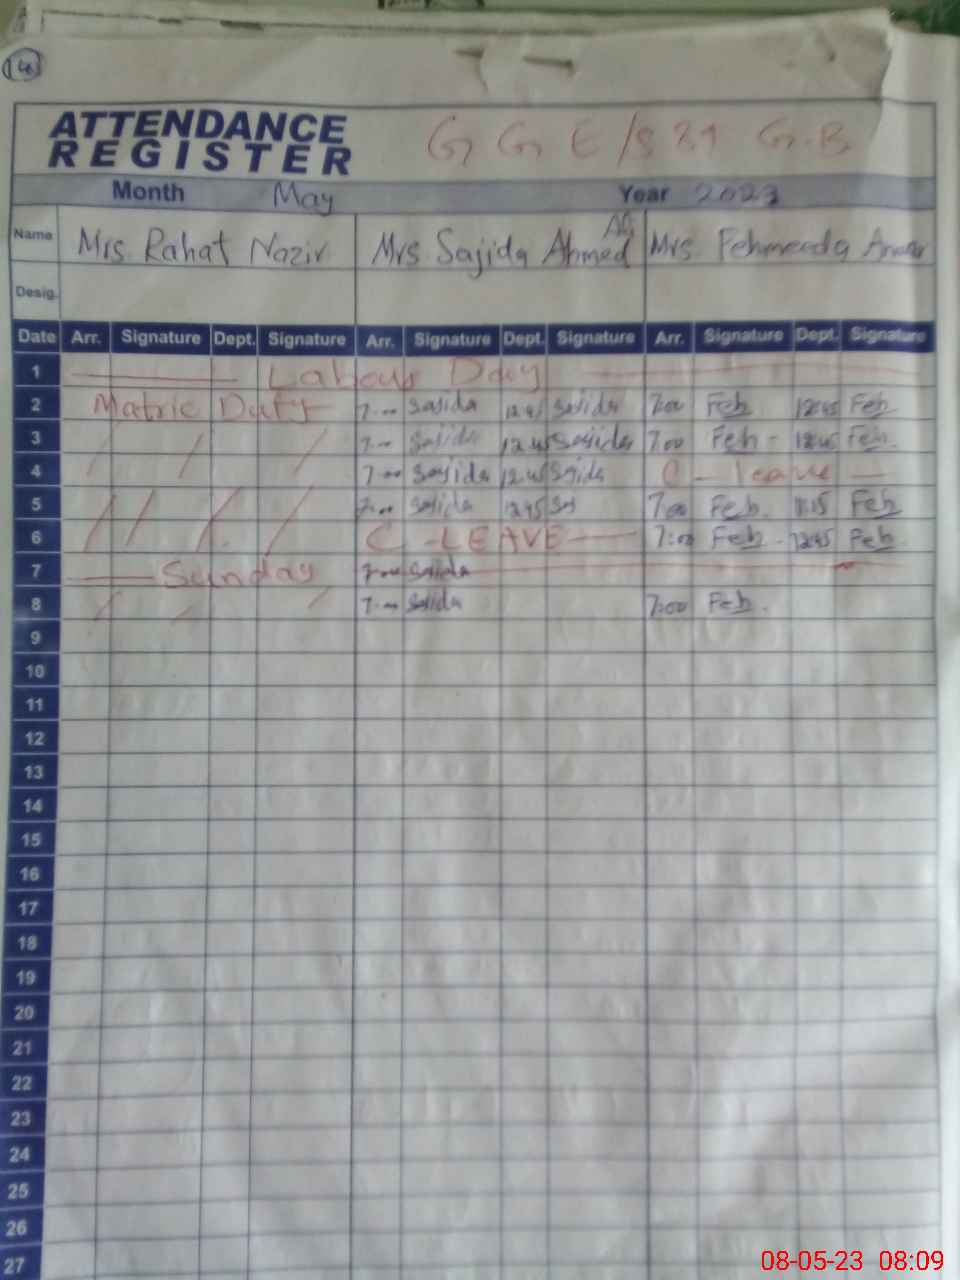 14
ATTENDANCE
REGISTER
G G E/S 81 G.B
Month May Year 2023
Name Mrs Rahat Nazir Mrs Sajida Ahmed Mrs. Fehmeeda
Desig.
Date Arr. Signature Dept. Signature Arr. Signature Dept. Signature Arr. Signature Dept. Signature
1 Labour Day
2 Matric Duty 7:00 Sajida 12:45 Sajida 7:00 Feh 12:45 Feh
3 / / / 7:00 Sajida 12:45 Sajida 7:00 Feh 12:45 Feh
4 7:00 Sajida 12:45 Sajida C - leave
5 / / / / 7:00 Sajida 12:45 Saj 7:00 Feh 11:15 Feh
6 C - LEAVE 7:00 Feh 12:45 Feh
7 Sunday 7:00 Sajida
8 / / / 7:00 Sajida 7:00 Feh.
9
10
11
12
13
14
15
16
17
18
19
20
21
22
23
24
25
26
27
08-05-23 08:09